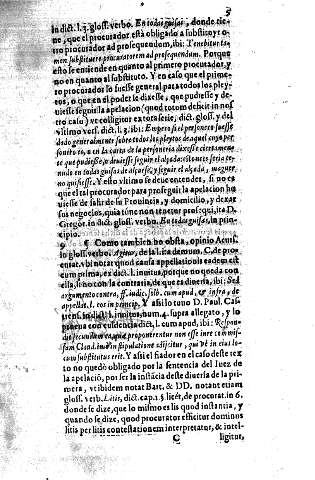 5
in dict. l. 3. gloss. verbo. En todas guisas, donde tie-
ne, que el procurador està obligado a substituyr o-
tro procurador ad prosequendum, ibi: Tenebitur ta-
men substituere procuratorem ad prosequendum. Porque
esto se entiende en quanto al primero procurador, y
no en quanto al substituto. Y en caso que el prime-
ro procurador lo fuesse general para todos los pley-
tos, o que en el poder le dixesse, que pudiesse y de-
uiesse seguir la apelacion (quod totum deficit in nos-
tro casu) vt colligitur ex tota serie, dict. gloss. y del
vltimo vers. dict. l. 3. ibi: Empero si el personero fuesse
dado generalmente sobre todos los pleytos de aquel cuyo per-
sonero es, o en la carta de la personeria dixesse ciertamen-
te que pudiesse, o deuiesse seguir el alçada: estonce seria te-
nudo en todas guisas de alçarse, y seguir el alçada, maguer
no quisiesse. Y esto vltimo se deue entender, si no es
que el tal procurador para proseguir la apelacion hu-
uiesse de salir de su Prouincia, y domicilio, y dexar
sus negocios, quia tũnc non tenetur prosequi, ita D.
Gregor. in dict. gloss. verbo. En todas guisas, in prin-
cipio.
9 ¶ Como tambien no obsta, opinio Acurs.
in gloss. verbo. Agitur, de la l. ita demum. C. de procu-
rat. vbi notat quod causa appellationis eadem est
cum prima, ex dict. l. inuitus, porque no queda con
ella, sino con la contraria, de que es diuersa, ibi: Sed
argumento contra, ff. iudic. solu. cum apud, & infra, de
appellat. l. eos in princip. Y assi lo tuuo D. Paul. Cas
trens. in dict. l. inuitus, num. 4. supra allegato, y lo
prueua con euidencia dict. l. cum apud, ibi: Respon-
dit secundum ea quæ proponerentur non esse in re com mis-
sam Claud. in am stipulatione adijcitur, qui vt in eius lo-
cum substitutus erit. Y assi el fiador en el caso deste tex
to no quedò obligado por la sentencia del Iuez de
la apelaciõ, por ser la instãcia deste diuersa de la pri-
mera, vt ibidem notat Bart. & DD. notant etiam
gloss. verb. Litis, dict. cap. 1. §. licèt, de procurat. in 6.
donde se dize, que lo mismo es lis quod instantia, y
quando se dize, quod procurator efficitur dominus
litis per litis contestationem interpretatur, & intel-
C ligitur,